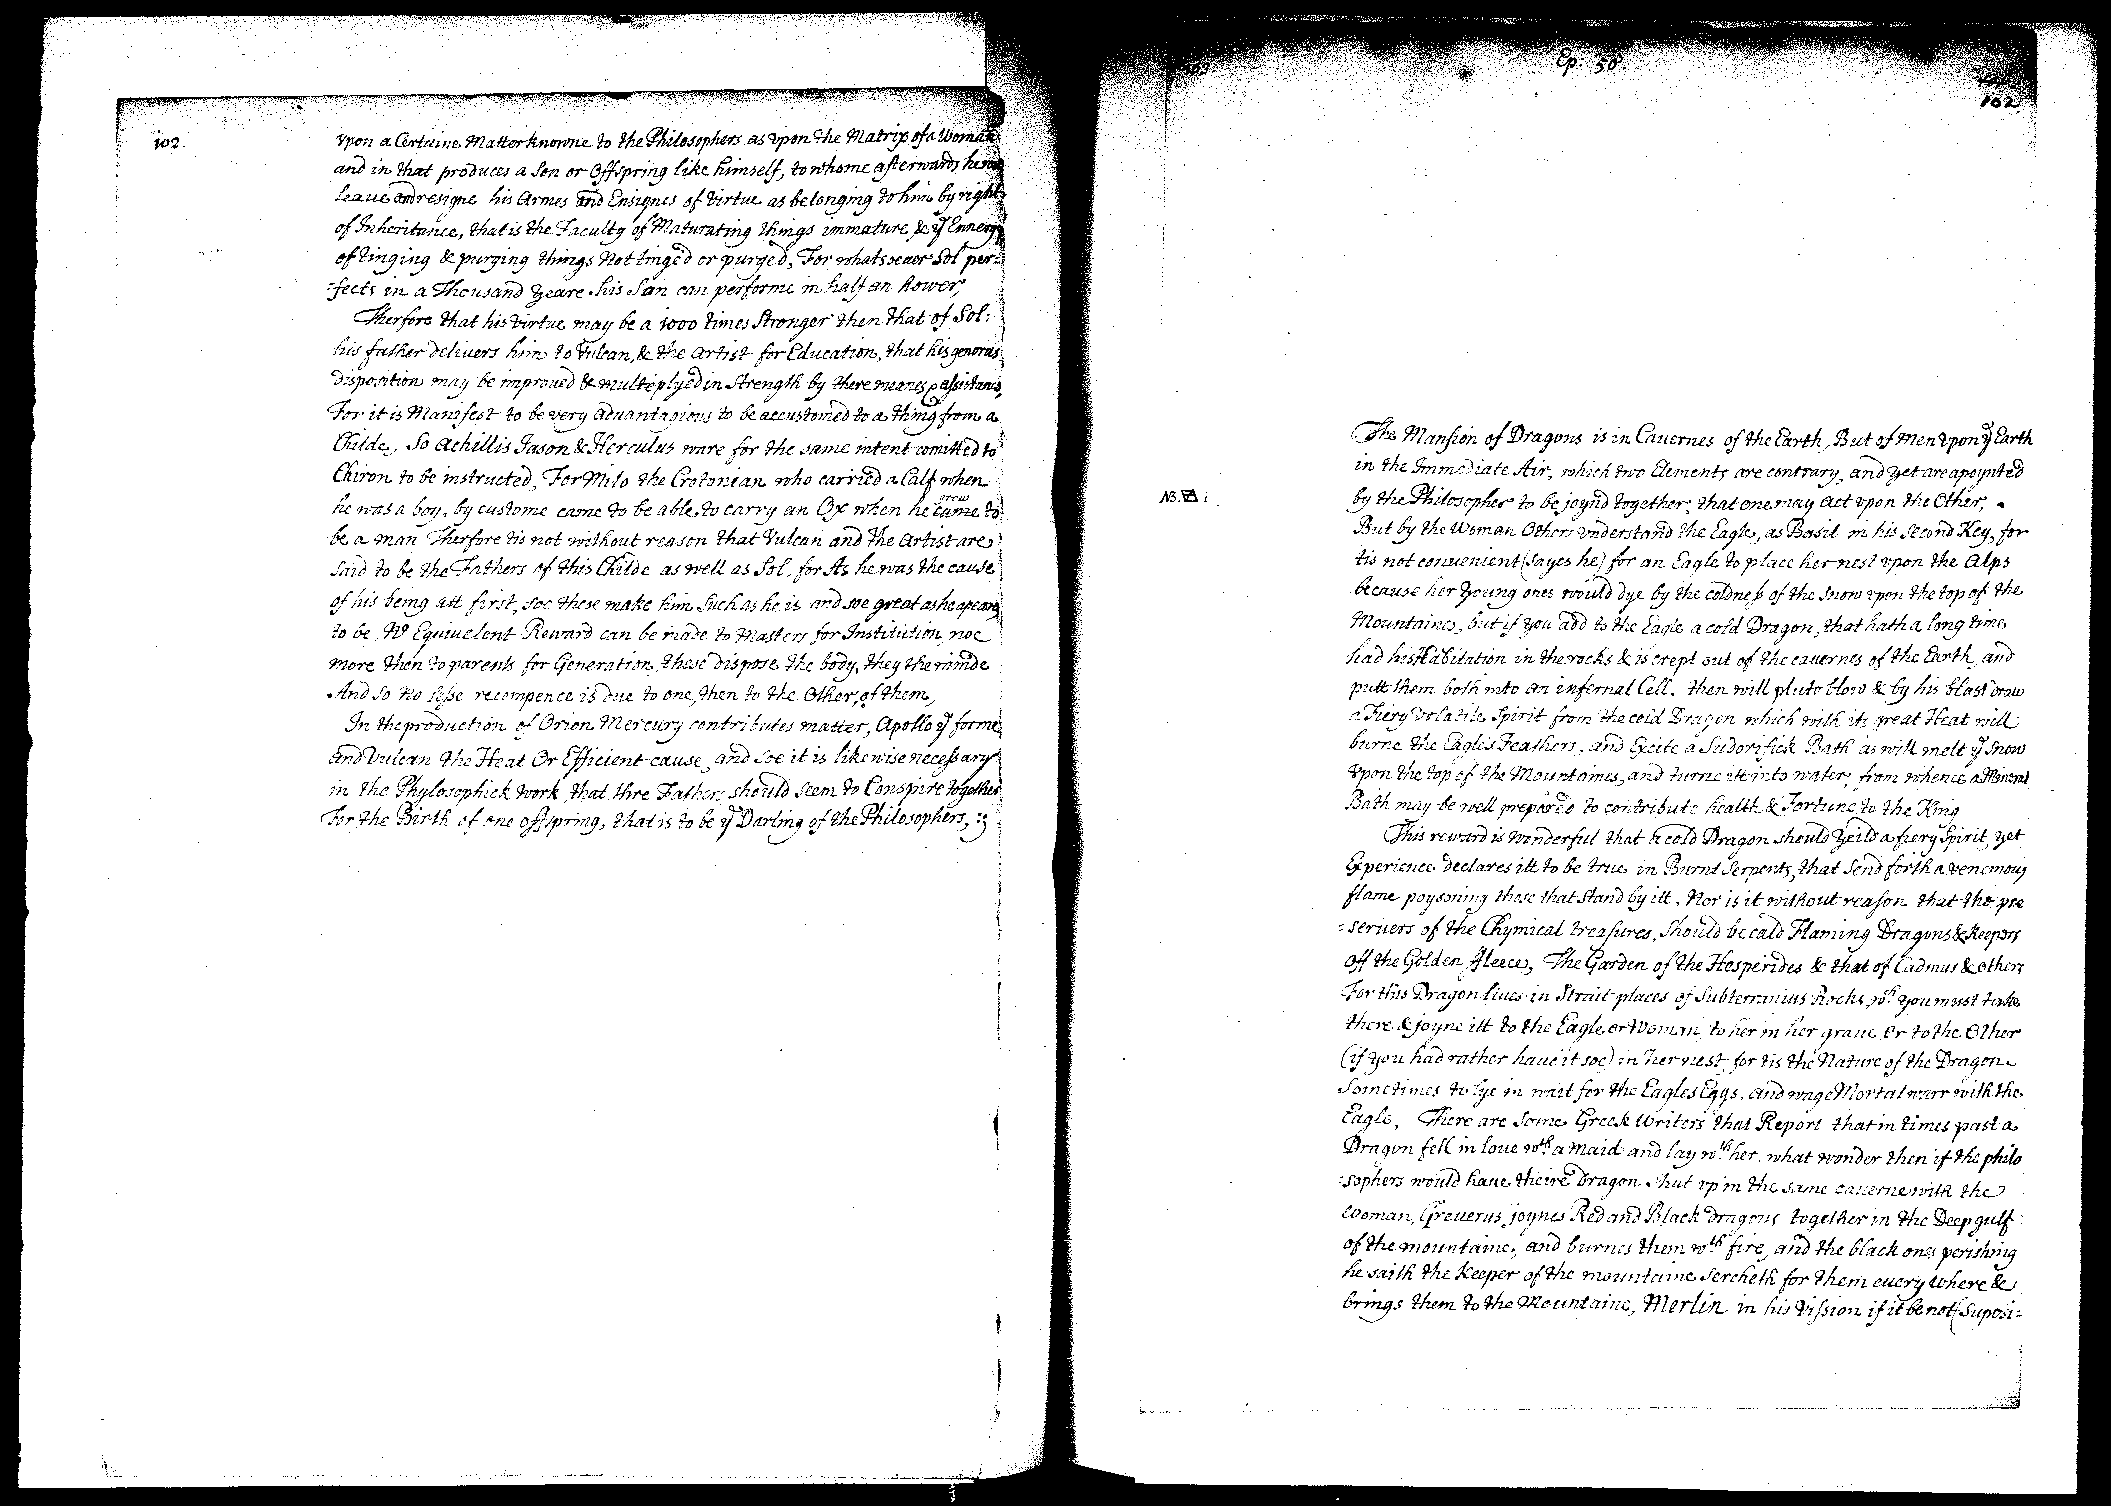 102.
vpon a Certaine Matter knowne to the Philosophers as vpon the Matrix of a Woman
and in that produces a Son or Offspring like himself, to whome afterwards he
Leaue and resigne his Armes and Ensignes of Virtue as belonging to him by right
of Inheritance, that is the Faculty of Maturating things immature & yͤ Ennergy
of tinging & purging things Not tinged or purged, For whatsoeuer Sol per=
=fects in a Thousand yeare his Son can performe in half an hower,
Therfore that his Virtue may be a 1000 times Stronger then that of Sol:
his father delivers him to Vulcan, & the Artist for Education, that his generous
disposition may be improued & multeplyed in Strength by there meanes & assistance,
For it is Manifest to be very aduantagious to be accustomed to a thing from a
Childe, So Achillis Jason & Herculus ware for the same intent comitted to
Chiron to be instructed, For Milo the Crotonian who carried a Calf when
he was a boy, by custome came to be able to carry an Ox when he came to
grew
be a man Therfore tis not without reason that Vulcan and the Artist are
said to be the Fathers of this Childe as well as Sol, for As he was the cause
of his being att first, soe these make him such as he is and soe great as he apears
to be, No Equivelent Reward can be made to Masters for Institution noe
more then to parents for Generation, these dispose the body, they the minde
And so No lesse recompence is due to one, then to the Other, of them,
In the production of Orion Mercury contributes matter, Apollo yͤ forme
and Vulcan the Heat Or Efficient cause, and soe it is likewise necessary
in the Phylosophick work, that thre Fathers should seem to Conspire together
For the Birth of one offspring, that is to be yͤ Darling of the Philosophers, :
Ep. 50
102
The Mansion of Dragons is in Cavernes of the Earth, But of Men vpon yͤ Earth
in the Immediate Air, which two Elements are contrary, and yet are apoynted
by the Philosopher to be joynd together, that one may act vpon the Other,
NB.
But by the Woman Others vnderstand the Eagle, as Basil in his Second Key, for
tis not convenient (sayes he) for an Eagle to place her nest vpon the Alps
because her Young ones would dye by the coldness of the snow vpon the top of the
Mountaines, but if you add to the Eagle a cold Dragon, that hath a long time
had his Habitation in the rocks & is crept out of the cauernes of the Earth, and
putt them both into an infernal Cell. then will pluto blow & by his blast draw
a Fiery volatile Spirit from the cold Dragon which with its great Heat will
burne the Eagles Feathers, and Excite a Sudorifick Bath as will melt yͤ Snow
vpon the top of the Mountaines, and turne itt into water, from whence a Mineral
Bath may be well prepared to contribute health & Fortune to the King
This reward is wonderful that a cold Dragon should yeild a fiery Spirit, yet
Experience declares itt to be true in Burnt Serpents, that send forth a venemous
flame poysoning those that stand by itt, Nor is it without reason that the pre
=servers of the Chymical treasures, should be cald Flaming Dragons & Keepers
off the Golden Fleece, The Garden of the Hesperides & that of Cadmus & others
For this Dragon lives in Strait places of Subterranius Rocks, wᶜʰ you must take
there & joyne itt to the Eagle or Woman, to her in her graue, Or to the Other
(if you had rather haue it soe) in her nest, for tis the Nature of the Dragon
Sometimes to lye in wait for the Eagles Eggs, and wage Mortal warr with the
Eagle, There are some Greek Writers that Report that in times past a
Dragon fell in loue wᵗʰ a maid and lay wᵗʰ her, what wonder then if the philo
=sophers would haue theire Dragon shut vp in the same cauerne with the
woman, Greuerus joynes Red and Black dragons together in the Deep gulf
of the mountaine, and burnes them wᵗʰ fire, and the black ones perishing
he saith the keeper of the mountaine sercheth for them euery where &
brings them to the Mountaine, Merlin in his Vission if it be not (Suposi=